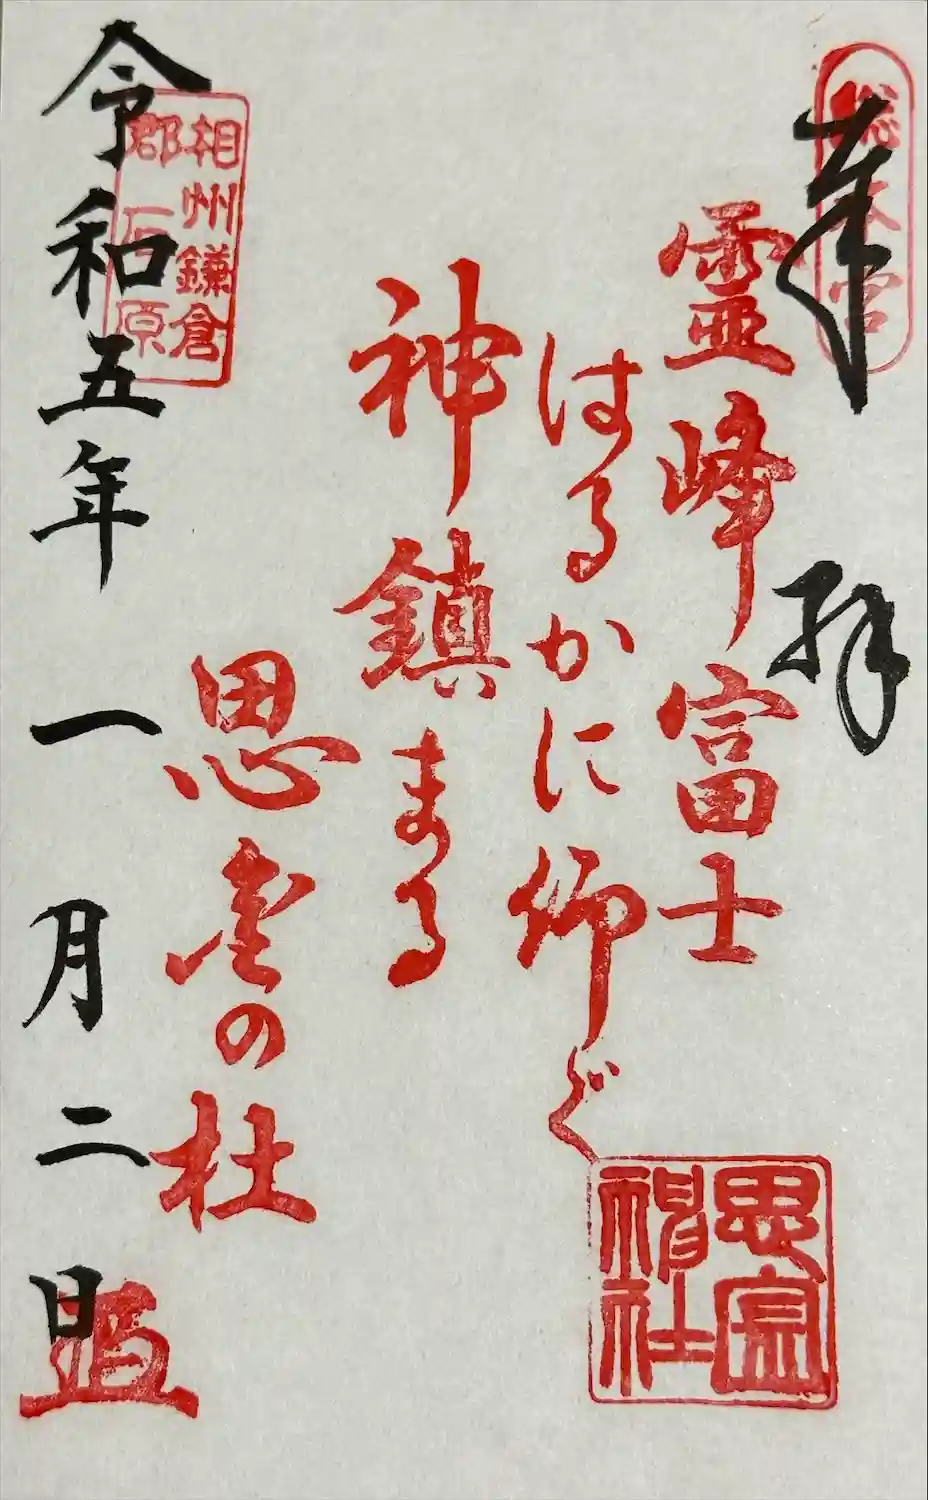 總本宮
奉拝
霊峰富士
はるかに仰ぐ
神鎮まる
思金の杜
思金神社
相州鎌倉
郡石原
令和五年一月二日